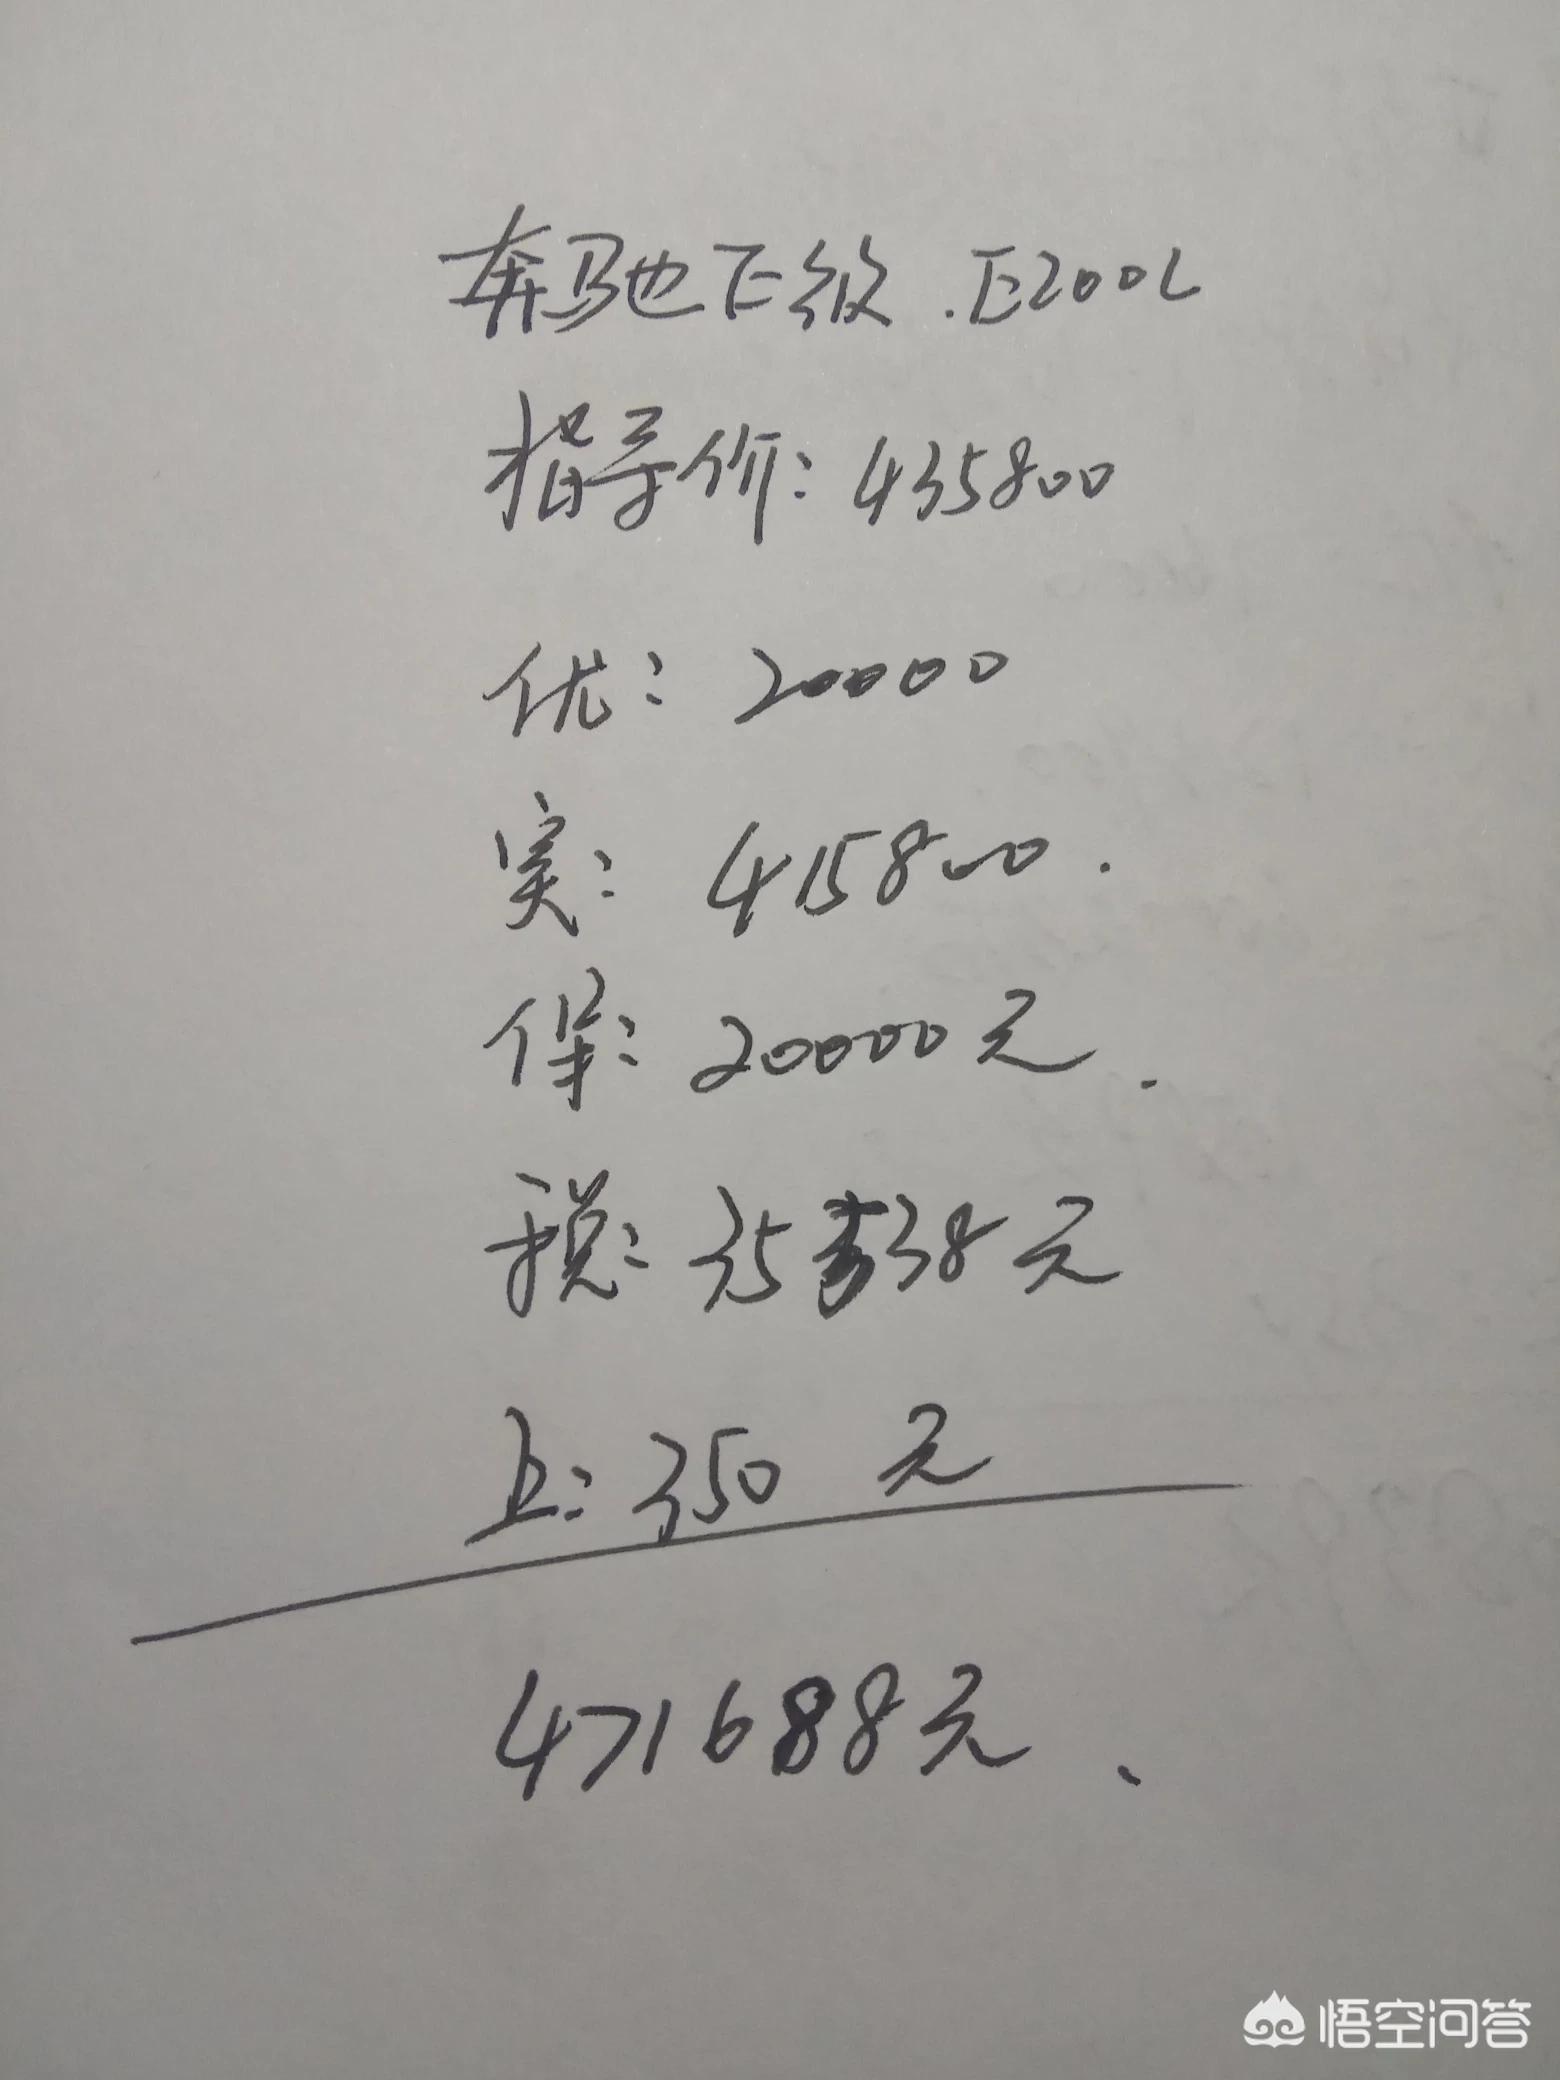 奔驰E级.E200L
指导价:435800
优:20000
实:415800.
保:20000元.
税:35538元
上:350元
471688元、
悟空问答